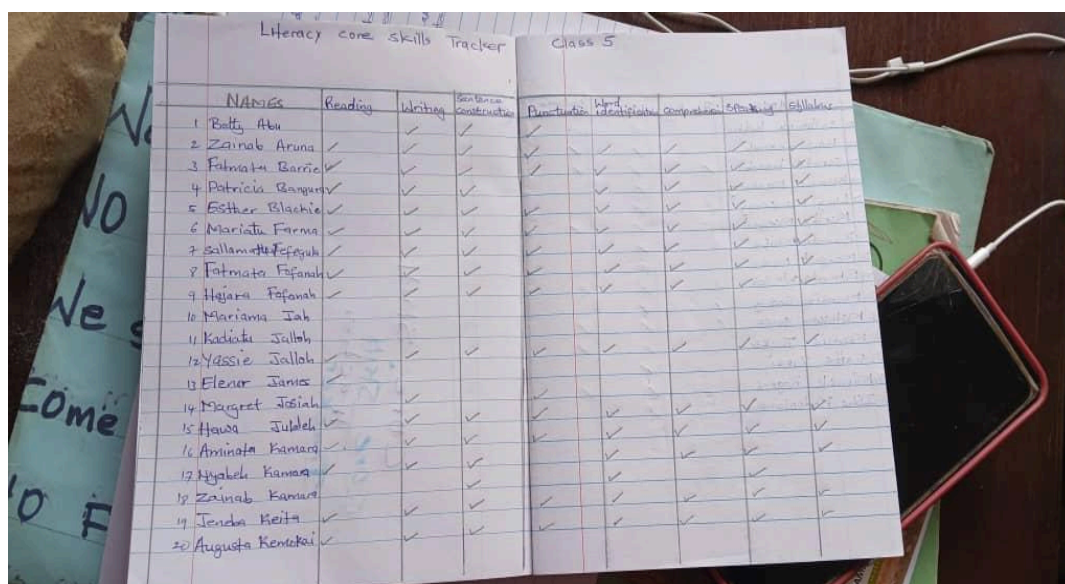 Literacy core skills Tracker Class 5
NAMES Reading Writing Sentence construction Punctuation Word identification comprehension Speaking Syllabus
1 Betty Abu ✓ ✓ ✓
2 Zainab Aruna ✓ ✓ ✓ ✓ ✓ ✓ ✓ ✓
3 Fatmata Barrie ✓ ✓ ✓ ✓ ✓ ✓ ✓ ✓
4 Patricia Bangura ✓ ✓ ✓ ✓ ✓ ✓ ✓
5 Esther Blackie ✓ ✓ ✓ ✓ ✓ ✓ ✓ ✓
6 Mariatu Farma ✓ ✓ ✓ ✓ ✓ ✓ ✓ ✓
7 Sallamatu ✓ ✓ ✓ ✓ ✓ ✓ ✓ ✓
8 Fatmata Fofanah ✓ ✓ ✓ ✓ ✓ ✓ ✓ ✓
9 Hajara Fofanah ✓ ✓ ✓ ✓ ✓ ✓ ✓ ✓
10 Mariama Jah
11 Kadiatu Jalloh
12 Yassie Jalloh ✓ ✓ ✓ ✓ ✓ ✓ ✓ ✓
13 Elenor James ✓
14 Margret Josiah ✓ ✓
15 Hawa ✓ ✓ ✓ ✓ ✓ ✓ ✓ ✓
16 Aminata Kamara ✓ ✓ ✓ ✓ ✓ ✓ ✓ ✓
17 Nyabeh Kamara ✓ ✓ ✓ ✓ ✓
18 Zainab Kamara ✓ ✓ ✓
19 Jeneba Keita ✓ ✓ ✓ ✓ ✓ ✓ ✓ ✓
20 Augusta Kemokai ✓ ✓ ✓ ✓ ✓ ✓ ✓ ✓
NO
We
come
F